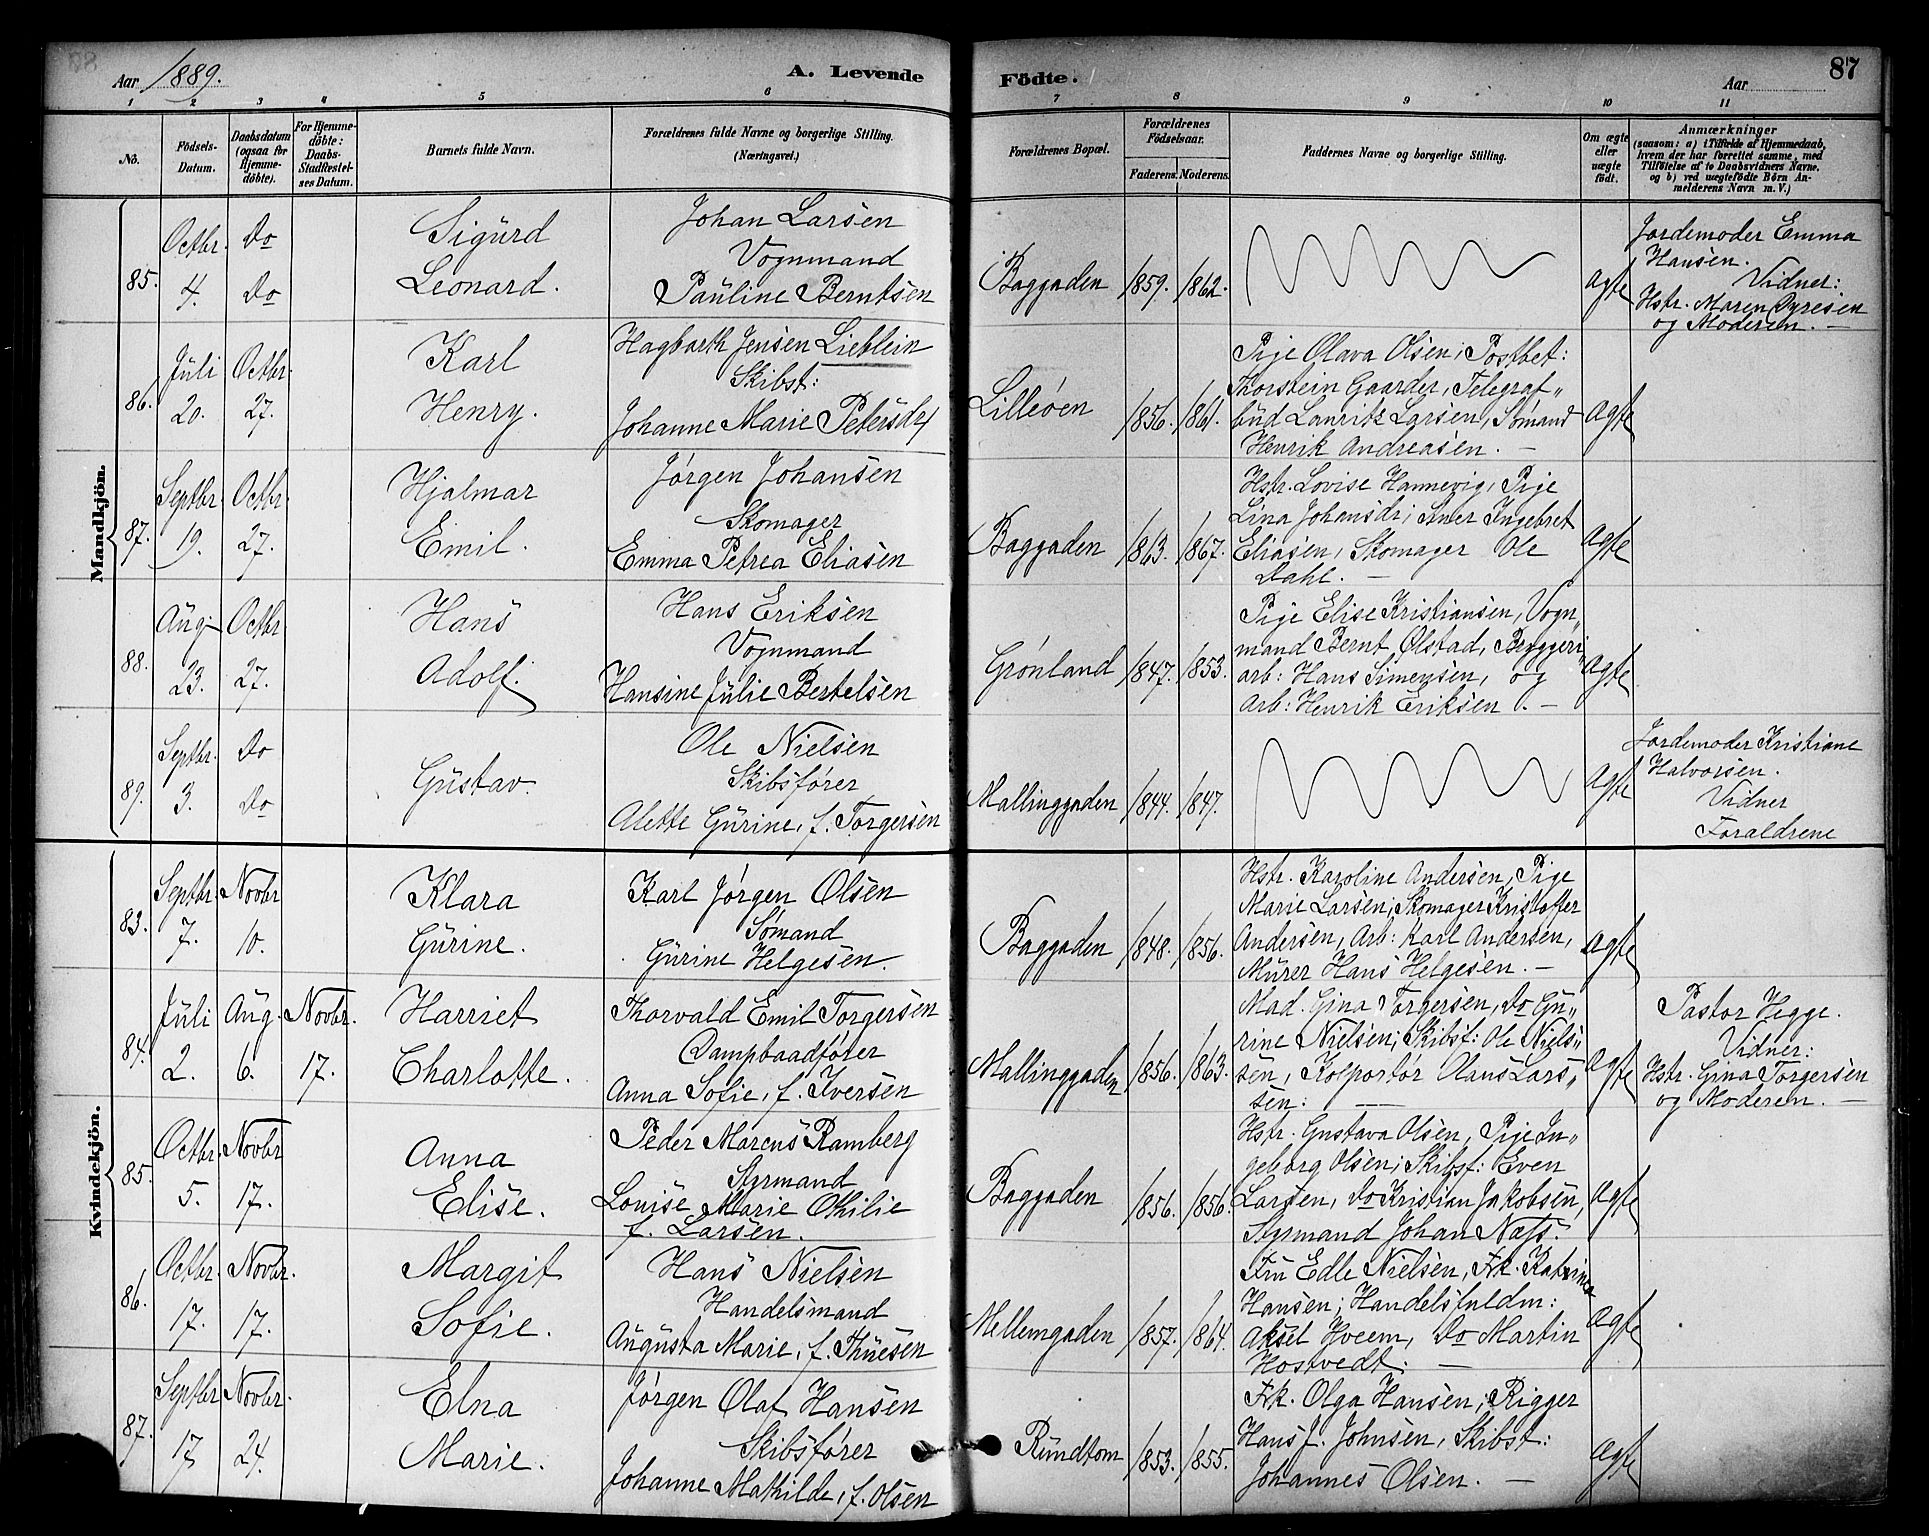 Aar 1889.
A. Levende
Födte.
Aar
87
1 2 3 4 5 6 7 8 9 10 11
No.
Födsels-Datum.
Daabsdatum (ogsaa for Hjemme-döbte).
For Hjemme-döbte: Daabs-Stadfæstel-ses Datum.
Barnets fulde Navn.
Forældrenes fulde Navne og borgerlige Stilling. (Næringsvei.)
Forældrenes Bopæl.
Forældrenes Födselsaar.
Faderens. Moderens.
Faddernes Navne og borgerlige Stilling.
Om ægte eller uægte födt.
Anmærkninger
(saasom: a) i Tilfælde af Hjemmedaab, hvem der har forrettet samme, med Tilföielse af to Daabsvidners Navne, og b) ved uægtefödte Börn An-melderens Navn m. V.)
Mandkjön.
85. Octbr. 4. Do Do
Sigurd
Leonard.
Johan Larsen
Vognmand
Pauline Berntsen
Baggaden 1859. 1862.
ægte
Jordemoder Emma
Hansen.
Vidner:
Hstr. Maren Dyresen
og Moderen. —
86. Juli 20. Octbr. 27.
Karl
Henry.
Hagbarth Jensen Lieblein
Skibst:
Johanne Marie Petersdr
Lilleöen 1856. 1861.
Pige Olava Olsen, Postbet:
Thorstein Gaarder, Telegraf„
bud Lauritz Larsen, Sømand
Henrik Andreasen. —
ægte
87. Septbr. 19. Octbr. 27.
Hjalmar
Emil.
Jørgen Johansen
Skomager
Emma Petrea Eliasen
Baggaden 1863. 1867.
Hstr. Lovise Hannevig, Pige
Lina Johansdr; Sner Ingebret
Eliasen, Skomager Ole
Dahl. —
ægte
88. Aug. 23. Octbr 27.
Hans
Adolf.
Hans Eriksen
Vognmand
Hansine Julie Bertelsen
Grønland 1847. 1853.
Pige Elise Kristiansen, Vogn„
mand Bernt Ølstad, Bryggeri„
arb: Hans Simensen, og
Arb: Henrik Eriksen. —
ægte
89. Septbr. 3. Do Do
Gustav.
Ole Nielsen
Skibsfører
Alette Gurine, f. Torgersen
Mallinggaden 1844. 1847.
ægte
Jordemoder Kristiane
Halvorsen.
Vidner
Forældrene
Kvindekjön.
83. Septbr. 7. Novbr 10.
Klara
Gurine.
Karl Jørgen Olsen
Sømand
Gurine Helgesen.
Baggaden 1848. 1856.
Hstr. Karoline Andersen, Pige
Marie Larsen; Skomager Kristoffer
Andersen, Arb: Karl Andersen,
Murer Hans Helgesen. —
ægte
84. Juli 2. Aug. 6. Novbr. 17.
Harriet
Charlotte.
Thorvald Emil Torgersen
Dampbaadfører
Anna Sofie, f. Iversen
Mallinggaden 1856. 1863.
Mad. Gina Torgersen, Do Gu„
rine Nielsen; Skibsf: Ole Niels„
sen, Kolportör Olaus Lars„
sen: —
ægte
Pastor Hegge.
Vidner:
Hstr. Gina Torgersen
og Moderen. —
85. Octbr. 5. Novbr 17.
Anna
Elise.
Peder Marcus Ramberg
Styrmand
Louise Marie Othilie
f. Larsen.
Baggaden 1856. 1856.
Hstr. Gustava Olsen, Pige In„
geborg Olsen; Skibsf: Even
Larsen, Do Kristian Jakobsen,
Styrmand Johan Næss.
ægte
86. Octbr. 17. Novbr. 17.
Margit
Sofie.
Hans Nielsen
Handelsmand
Augusta Marie, f. Thuesen
Mellemgaden 1857. 1864.
Fru Edle Nielsen, Frk. Katrine
Hansen; Handelsfuldm:
Aksel Hveem, Do Martin
Hostvedt. —
ægte
87. Septbr 17 Novbr. 24.
Elna
Marie.
Jørgen Olaf Hansen
Skibsfører
Johanne Mathilde, f. Olsen
Rundtom 1853. 1855.
Frk. Olga Hansen; Rigger
Hans J. Johnsen, Skibst:
Johannes Olsen. —
ægte